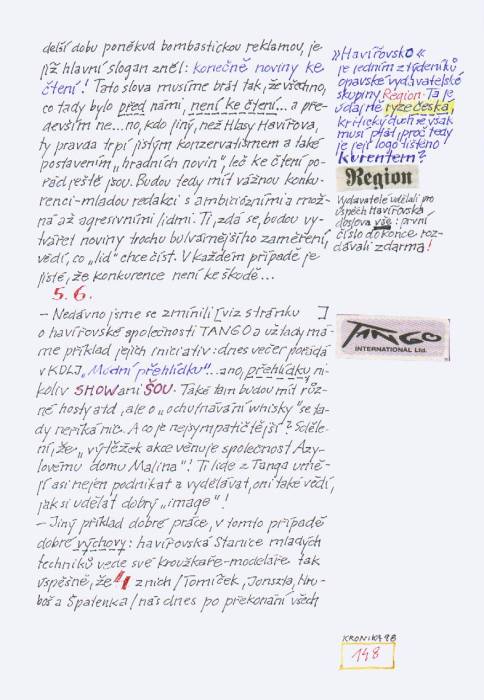 delší dobu poněkud bombastickou reklamou, je
jíž hlavní slogan zněl: konečně noviny ke
čtení! Tato slova musíme brát tak, že všechno,
co tady bylo před námi, není ke čtení... a pře-
devším ne... no, kdo jiný, než Hlasy Havířova,
ty pravda trpí jistým konzervatismem a také
postavením „hradních novin", leč ke čtení po-
řád ještě jsou. Budou tedy mít vážnou konku-
renci - mladou redakci s ambiciózními a mož-
ná až agresivními lidmi. Ti, zdá se, budou vy-
tvářet noviny trochu bulvárnějšího zaměření,
vědí, co „lid" chce číst. V každém případě je
jisté, že konkurence není ke škodě...
5. 6.
– Nedávno jsme se zmínili [viz stránku ]
o havířovské společnosti TANGO a už tady má-
me příklad jejich iniciativ: dnes večer pořádá
v KDLJ „Módní přehlídku"... ano, přehlídku, ni-
koliv SHOW ani ŠOU. Také tam budou mít růz-
né hosty atd, ale o „ochutnávání whisky" se ta-
dy neříká nic. A co je nejsympatičtější? Sděle-
ní, že „výtěžek akce věnuje společnost Azy-
lovému domu Malina"! Ti lidé z Tanga umě-
jí asi nejen podnikat a vydělávat, oni také vědí,
jak si udělat dobrý „image"!
– Jiný příklad dobré práce, v tomto případě
dobré výchovy: havířovská Stanice mladých
techniků vede své kroužkaře-modeláře tak
úspěšně, že z nich /Tomíček, Jonszta, Hru-
boš a Špatenka/ nás dnes po překonání všech
»Havířovsko«
je jedním z týdeníků
opavské vydavatelské
skupiny Region. Ta je
údajně ryze česká,
kritický duch se však
musí ptát, proč tedy
je její logo tištěno
kurentem?
Region
Vydavatelé udělali pro
úspěch Havířovska
doslova vše: první
číslo dokonce roz-
dávali zdarma!
TANGO
INTERNATIONAL Ltd.
KRONIKA 98
148